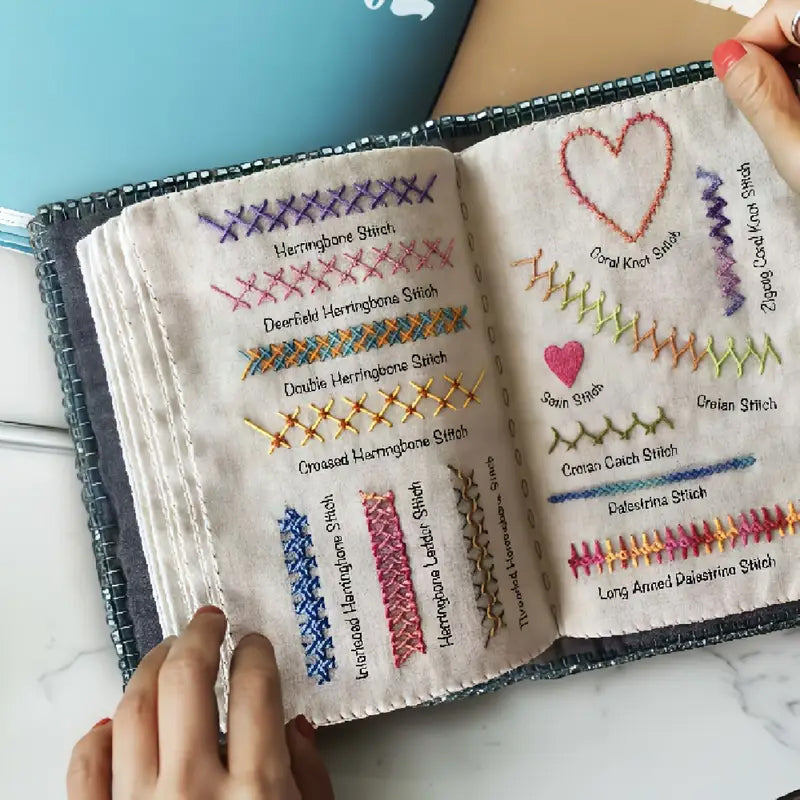 Herringbone Stitch
Deerfield Herringbone Stitch
Double Herringbone Stitch
Croased Herringbone Stitch
Interlaced Herringbone Stitch
Herringbone Ladder Stitch
Stitch
Coral Knot Stitch
Zigzag Coral Knot Stitch
Satin Stitch
Cretan Stitch
Cretan Catch Stitch
Palestrina Stitch
Long Armed Palestrina Stitch